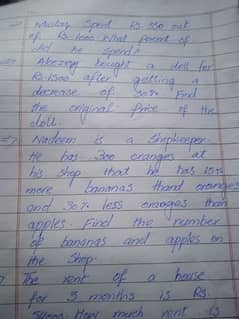 Spent Rs 550 out
of Rs 1000 What percent of
did he spend?
bought a doll for
Rs 1500 after getting a
decrease of 30% Find
the original price of the
doll.
=> Nadeem is a Shopkeeper
He has 300 oranges at
his shop that he has 15%
more bananas thand oranges
and 30% less oranges than
apples. Find the number
of bananas and apples on
the Shop.
The rent of a house
for 5 months is Rs
How much rent is